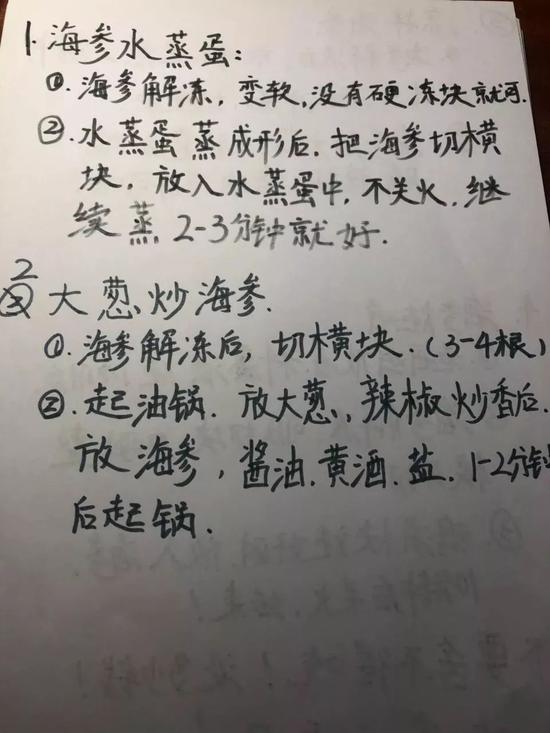 1. 海参水蒸蛋:
①. 海参解冻, 变软, 没有硬冻块就可.
②. 水蒸蛋蒸成形后. 把海参切横
块, 放入水蒸蛋中, 不关火. 继
续蒸 2-3分钟就好.
2 大葱炒海参.
①. 海参解冻后, 切横块. (3-4根)
②. 起油锅. 放大葱, 辣椒炒香后.
放海参, 酱油. 黄酒. 盐. 1-2分钟
后起锅.